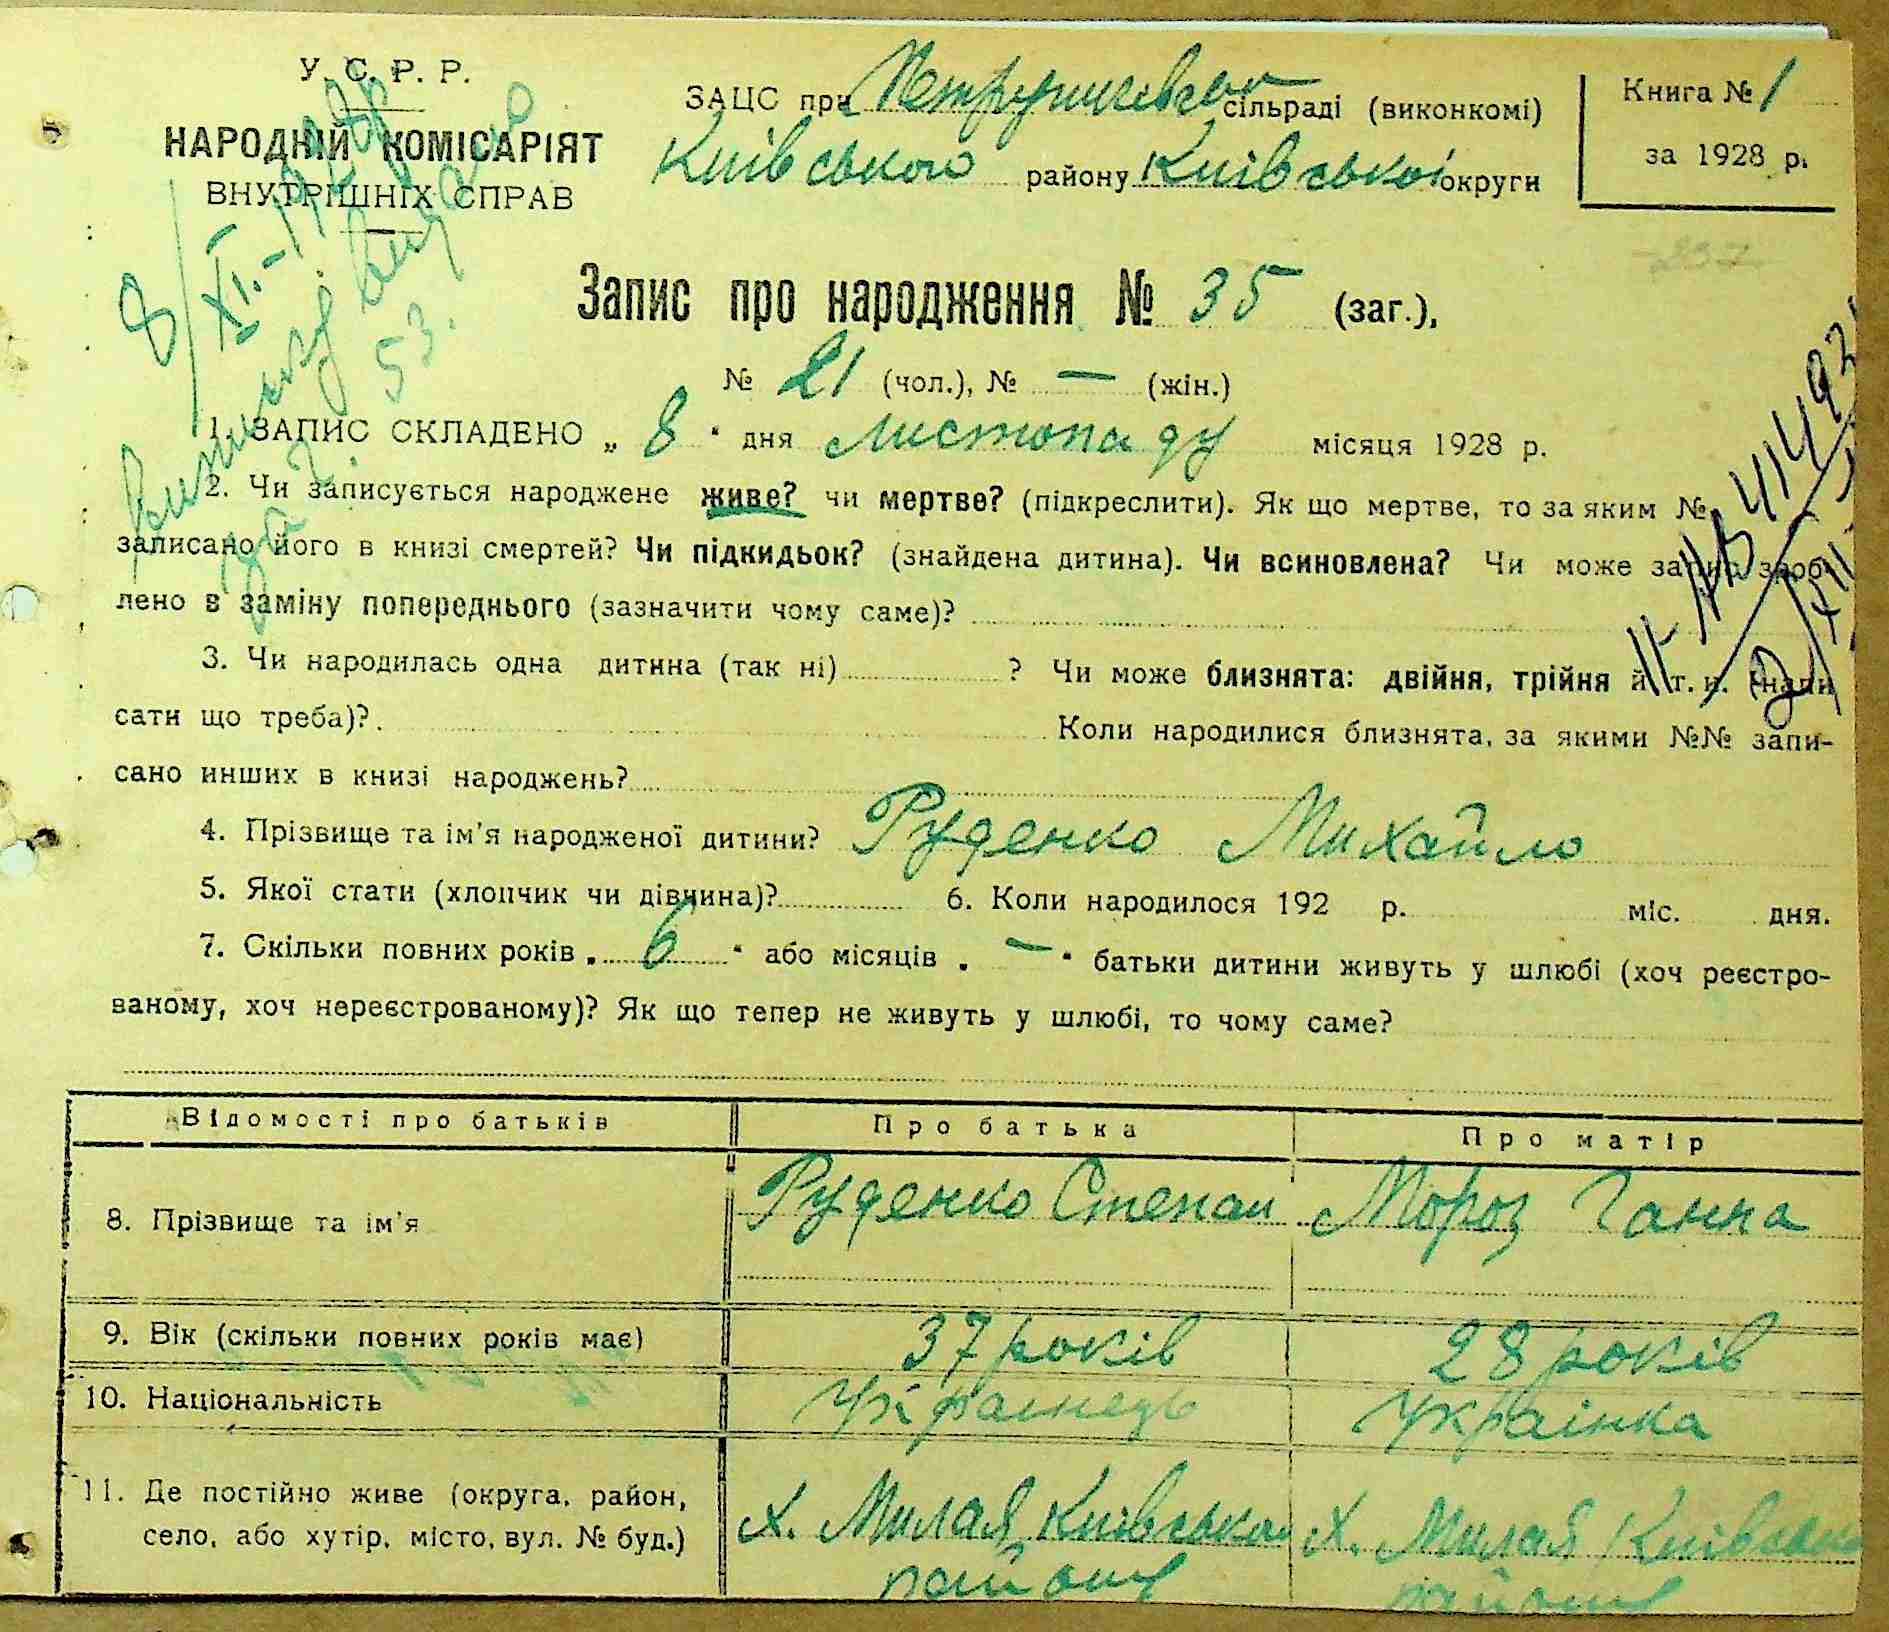 У. С. Р. Р.
НАРОДНІЙ КОМІСАРІЯТ
ВНУТРІШНІХ СПРАВ
ЗАЦС при Петрушевською сільраді (виконкомі)
Київського району Київської округи
Книга № 1
за 1928 р.
8/XI.-1928р
53.
Запис про народження № 35 (заг.),
№ 21 (чол.), № — (жін.)
1. ЗАПИС СКЛАДЕНО „ 8 “ дня листопаду місяця 1928 р.
2. Чи записується народжене живе? чи мертве? (підкреслити). Як що мертве, то за яким №
записано його в книзі смертей? Чи підкидьок? (знайдена дитина). Чи всиновлена? Чи може запис зроб-
лено в заміну попереднього (зазначити чому саме)?
3. Чи народилась одна дитина (так ні) ? Чи може близнята: двійня, трійня й т. и. (напи
сати що треба)? Коли народилися близнята, за якими №№ запи-
сано инших в книзі народжень?
4. Прізвище та ім'я народженої дитини? Руденко Михайло
5. Якої стати (хлопчик чи дівчина)? 6. Коли народилося 192 р. міс. дня.
7. Скільки повних років „ 6 “ або місяців „ — “ батьки дитини живуть у шлюбі (хоч реєстро-
ваному, хоч нереєстрованому)? Як що тепер не живуть у шлюбі, то чому саме?
Відомості про батьків Про батька Про матір
8. Прізвище та ім'я Руденко Степан Мороз Ганна
9. Вік (скільки повних років має) 37 років 28 років
10. Національність Українець Українка
11. Де постійно живе (округа, район,
село, або хутір, місто, вул. № буд.)
х. Милая Київського
району
х. Милая Київського
району